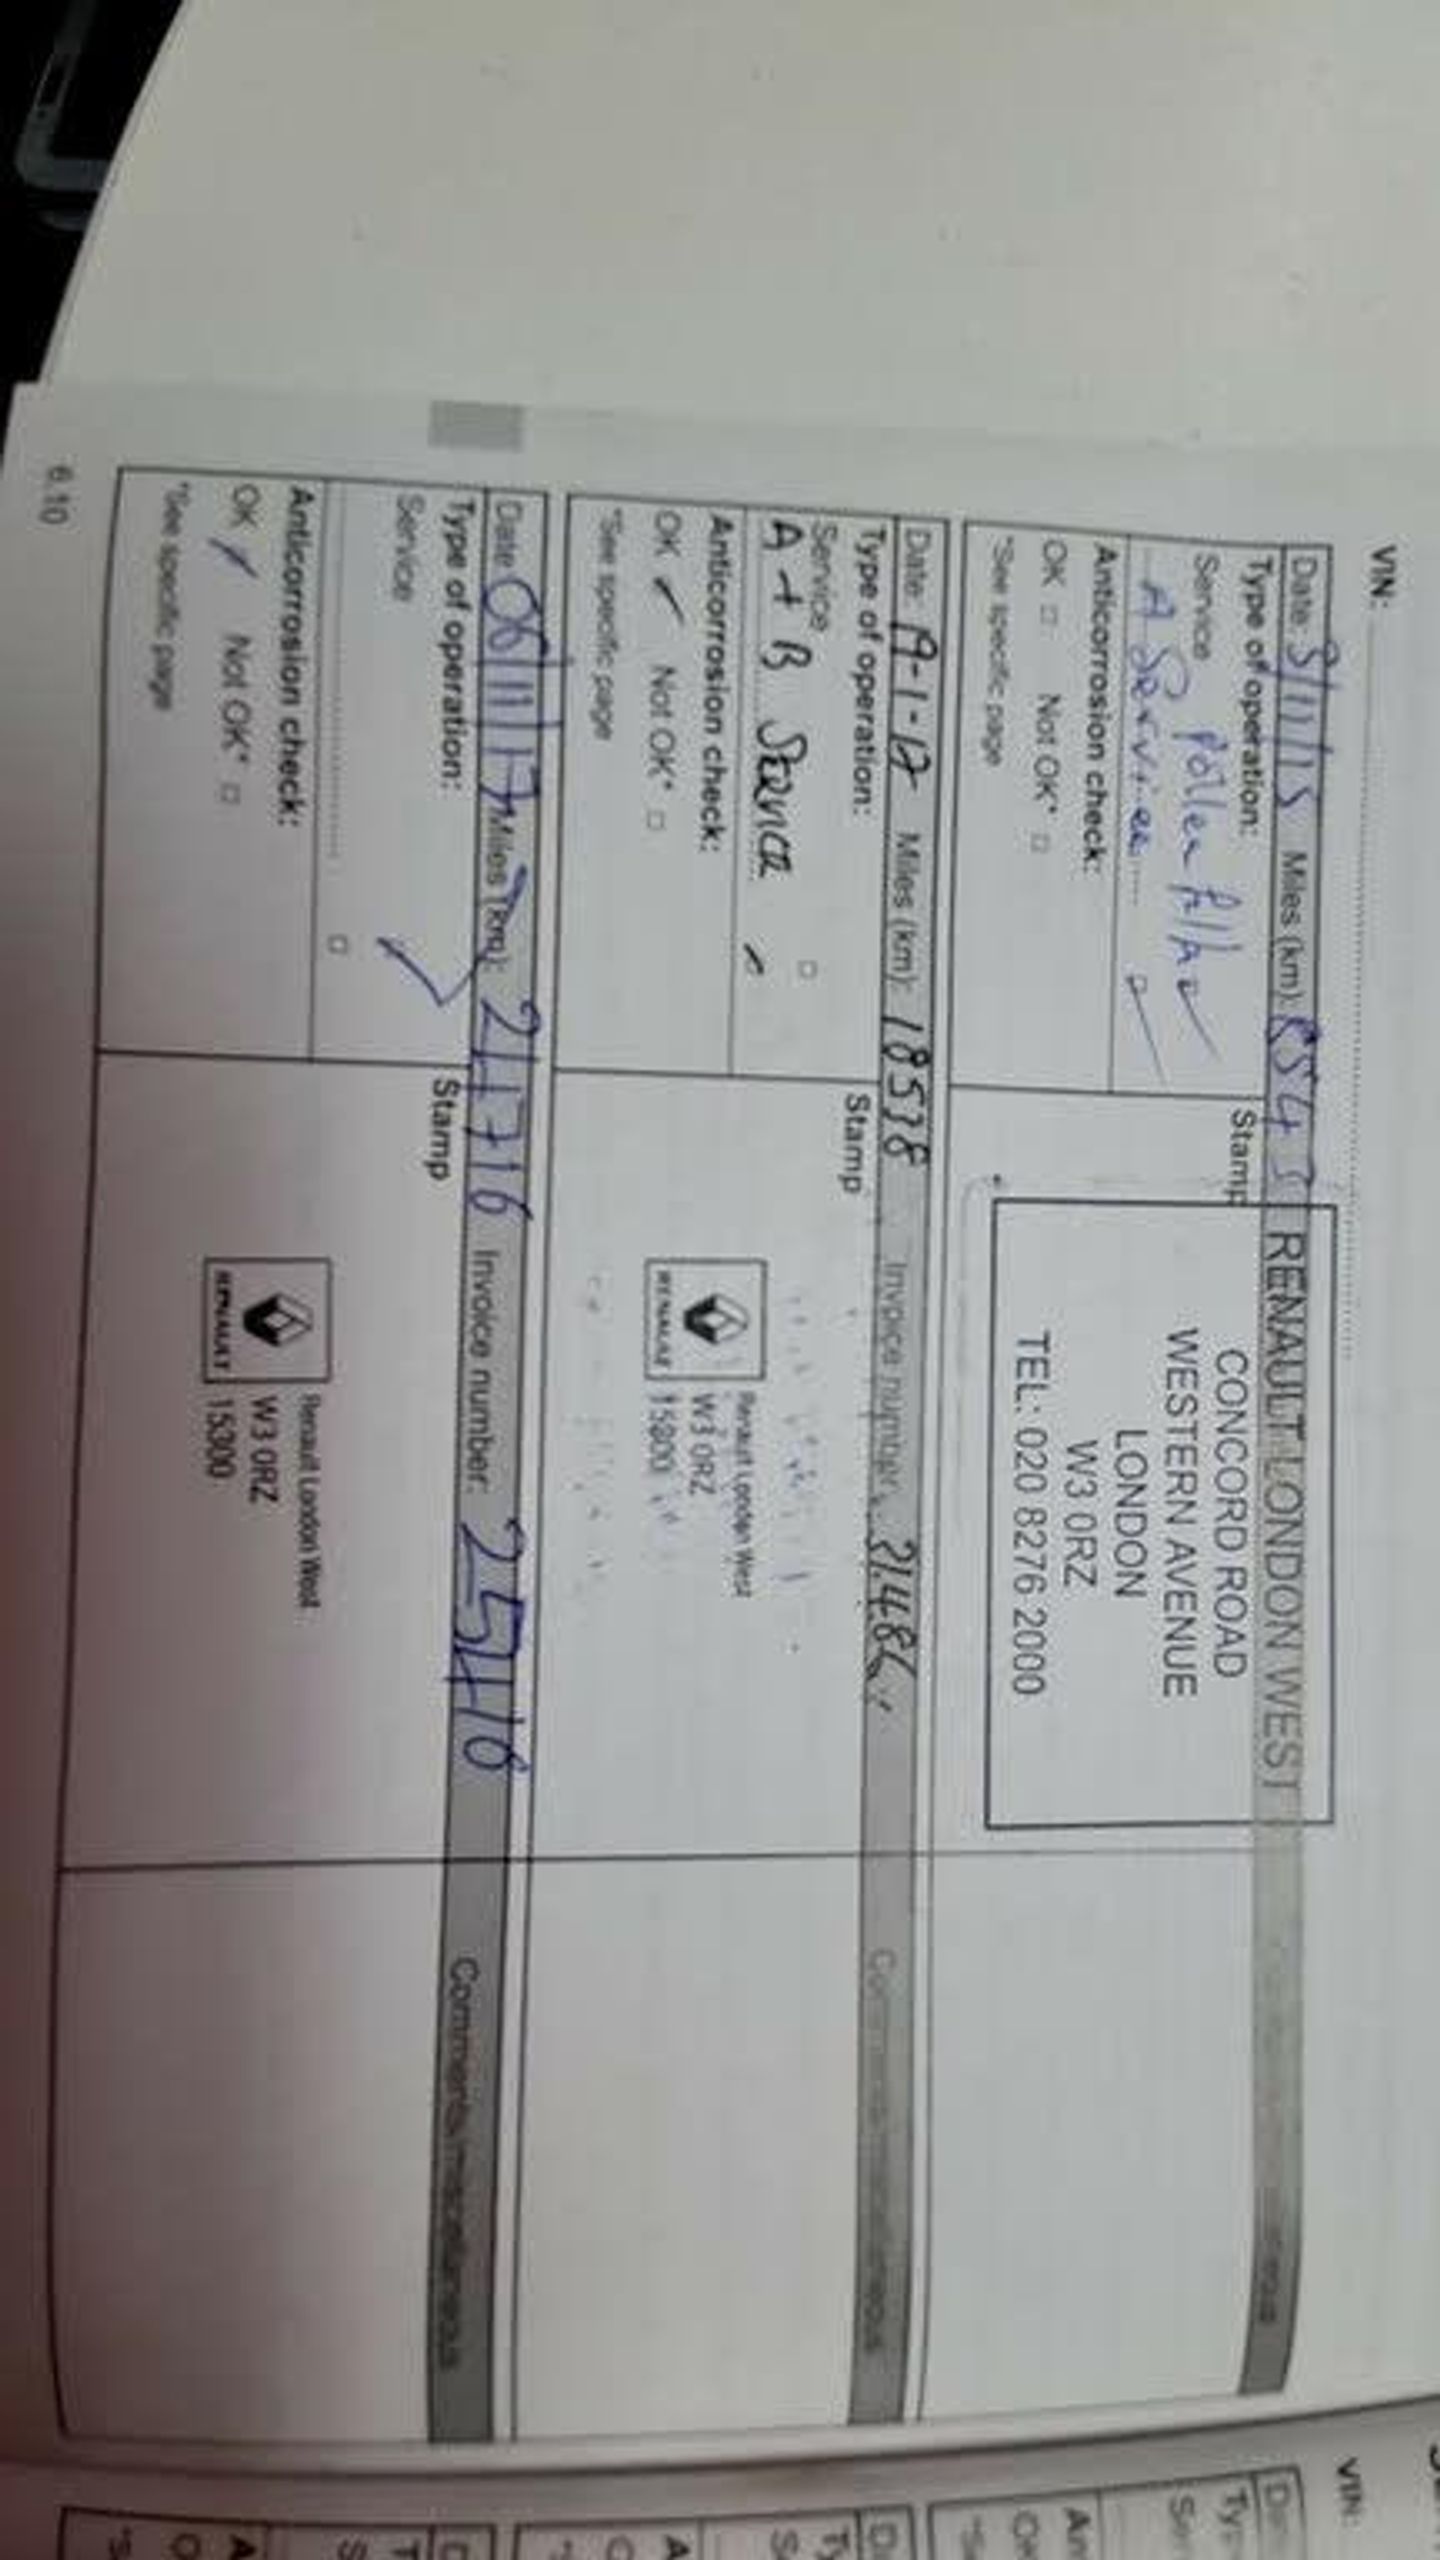 VIN:
Date: 9/11/15 Miles (km): 8543
Type of operation:
Stamp
Service Pollen
A Service
Anticorrosion check:
OK Not OK*
*See specific page
RENAULT LONDON WEST
CONCORD ROAD
WESTERN AVENUE
LONDON
W3 0RZ
TEL: 020 8276 2000
Date: 19-1-17 Miles (km): 18538 Invoice number:
Comments/miscellaneous
Type of operation:
Stamp
Service
A + B Service
Anticorrosion check:
OK Not OK*
*See specific page
RENAULT
Renault London West
W3 0RZ
15300
Date: 06/11/17 Miles (km): 21716 Invoice number: Comments/miscellaneous
Type of operation:
Stamp
Service
Anticorrosion check:
OK Not OK*
*See specific page
RENAULT
Renault London West
W3 0RZ
15300
6.10
VIN: